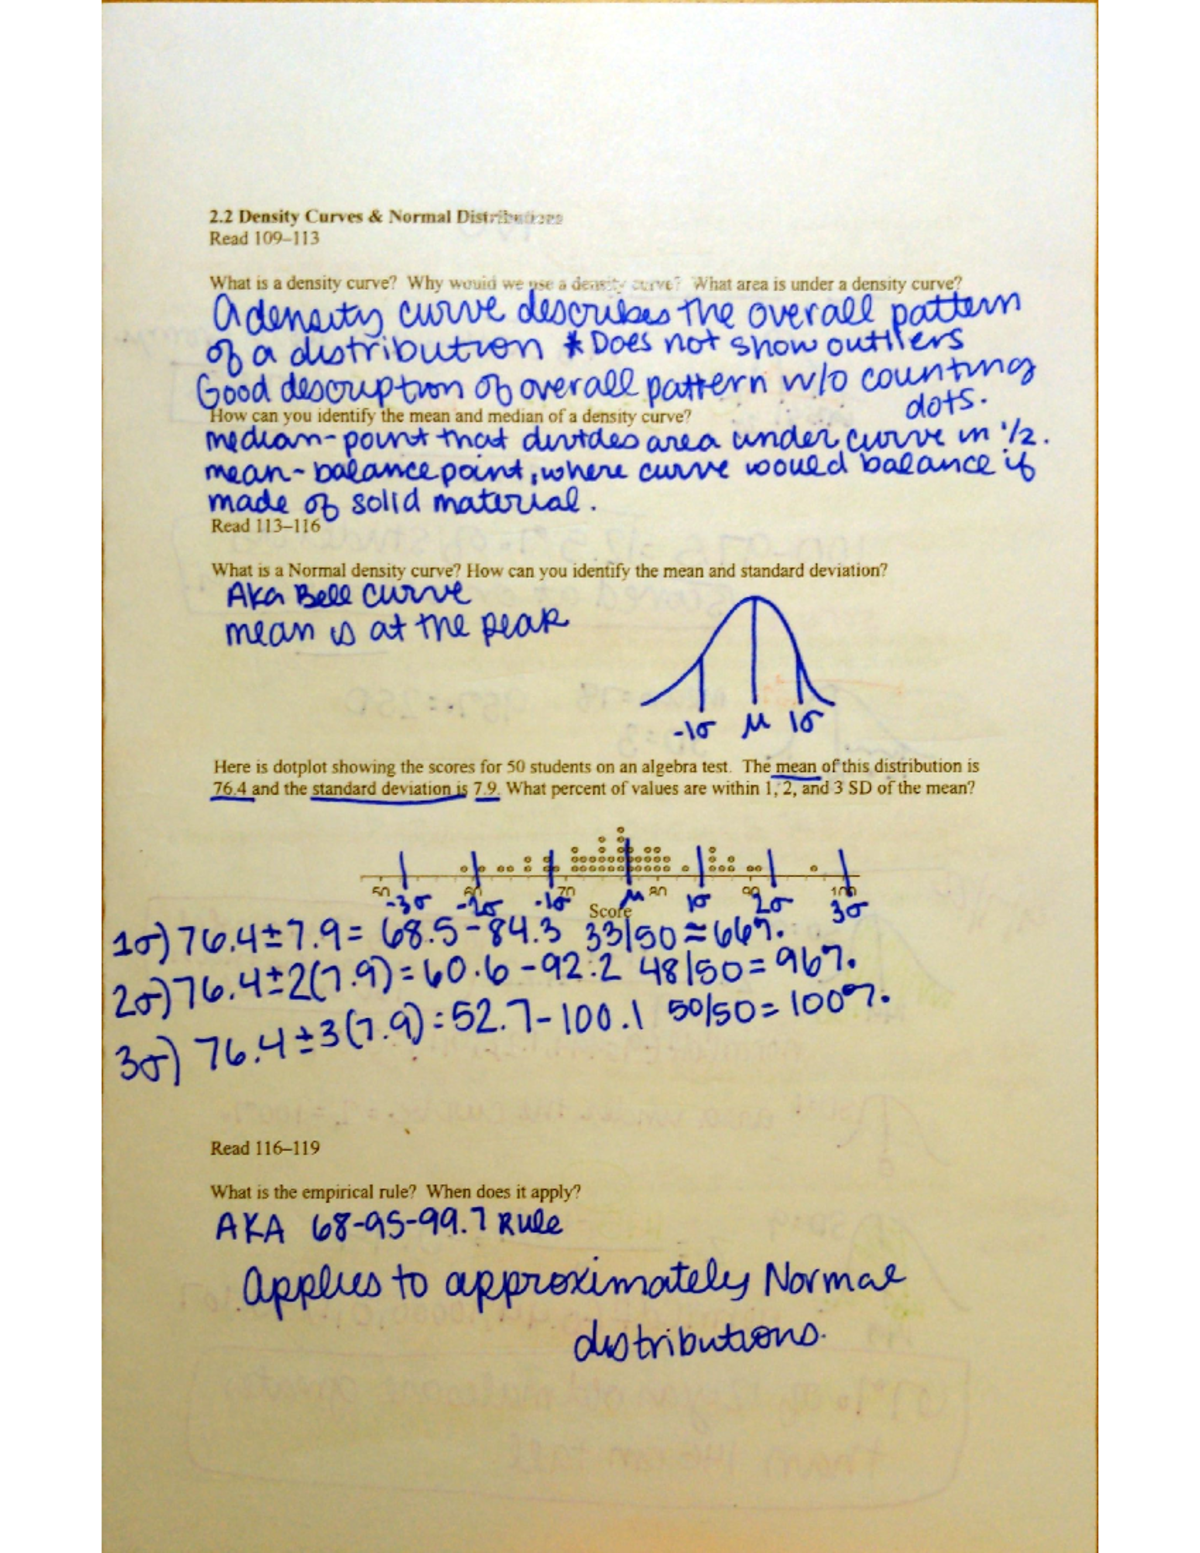 2.2 Density Curves & Normal Distributions
Read 109–113
What is a density curve? Why would we use a density curve? What area is under a density curve?
A density curve describes the overall pattern
of a distribution * Does not show outliers
Good description of overall pattern w/o counting
dots.
How can you identify the mean and median of a density curve?
median - point that divides area under curve in 1/2.
mean - balance point, where curve would balance if
made of solid material.
Read 113–116
What is a Normal density curve? How can you identify the mean and standard deviation?
Aka Bell curve
mean is at the peak
-1σ μ 1σ
Here is dotplot showing the scores for 50 students on an algebra test. The mean of this distribution is
76.4 and the standard deviation is 7.9. What percent of values are within 1, 2, and 3 SD of the mean?
50 60 70 80 90 100
-3σ -2σ -1σ μ 1σ 2σ 3σ
Score
1σ) 76.4±7.9= 68.5-84.3 33/50≈66%.
2σ) 76.4±2(7.9)=60.6-92.2 48/50=96%.
3σ) 76.4±3(7.9)=52.7-100.1 50/50=100%.
Read 116–119
What is the empirical rule? When does it apply?
AKA 68-95-99.7 Rule
Applies to approximately Normal
distributions.